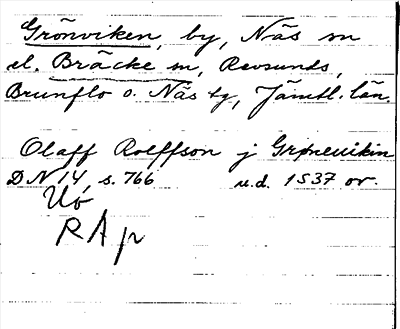 Grönviken, by, Näs sn
el. Bräcke sn, Revsunds,
Brunflo o. Näs tg, Jämtl. län.
Olaff Rolffson j Grøneuikin
DN 14, s. 766 u.d. 1537 or.
Uo
RAp